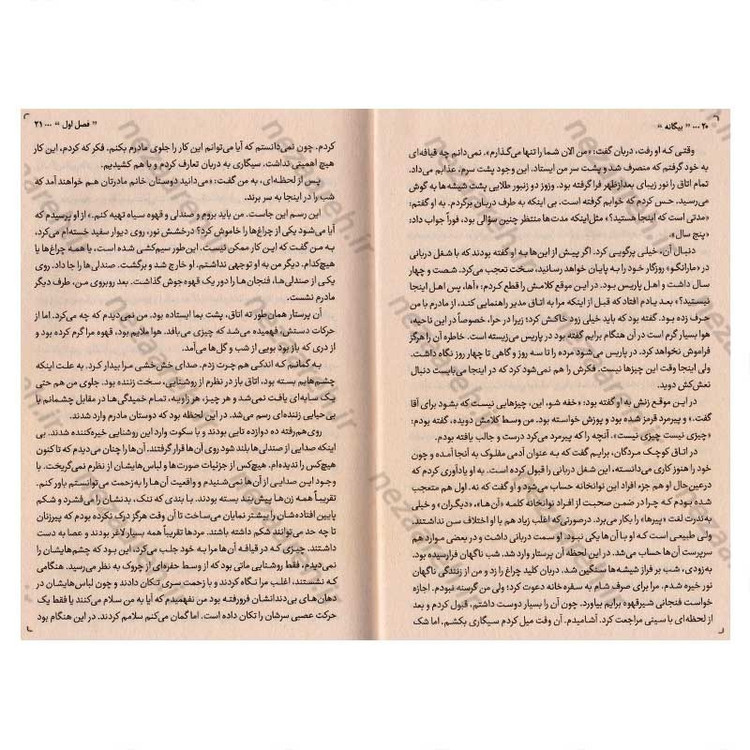 ۲۰ ... " بیگانه "
وقتی که او رفت، دربان گفت: «من الان شما را تنها می‌گذارم». نمی‌دانم چه قیافه‌ای
به خود گرفتم که منصرف شد و پشت سر من ایستاد. این وجود پشت سرم، عذابم می‌داد.
تمام اتاق را نور زیبای بعدازظهر فرا گرفته بود. وزوز دو زنبور طلایی پشت شیشه‌ها به گوش
می‌رسید. حس کردم که خوابم گرفته است. بی اینکه به طرف دربان برگردم. به او گفتم:
«مدتی است که اینجا هستید؟» مثل اینکه مدت‌ها منتظر چنین سؤالی بود، فوراً جواب داد:
«پنج سال».
دنبال آن، خیلی پرگویی کرد. اگر پیش از این‌ها به او گفته بودند که با شغل دربانی
در «مارانگو» روزگار خود را به پایان خواهد رسانید، سخت تعجب می‌کرد. شصت و چهار
سال داشت و اهل پاریس بود. در این موقع کلامش را قطع کردم: «آها، پس اهل اینجا
نیستید؟» بعد یادم افتاد که قبل از اینکه مرا به اتاق مدیر راهنمایی کند، از مادرم با من
حرف زده بود. گفته بود که باید خیلی زود خاکش کرد؛ زیرا در حرا، خصوصاً در این ناحیه،
هوا بسیار گرم است در آن هنگام برایم گفته بود در پاریس می‌زیسته است. خاطره آن را هرگز
فراموش نخواهد کرد. در پاریس می‌شود مرده را تا سه روز و گاهی تا چهار روز نگاه داشت.
ولی اینجا وقت این چیزها نیست. فکرش را هم نمی‌شود کرد که در اینجا می‌بایست دنبال
نعش‌کش دوید.
در این موقع زنش به او گفته بود: «خفه شو، این، چیزهایی نیست که بشود برای آقا
گفت.» و پیرمرد قرمز شده بود و پوزش خواسته بود. من وسط کلامش دویده، گفته بودم:
«چیزی نیست چیزی نیست». آنچه را که پیرمرد می‌کرد درست و جالب یافته بودم.
در اتاق کوچک مردگان، برایم گفت که به عنوان آدمی مفلوک به آنجا آمده و چون
خود را هنوز کاری می‌دانسته، این شغل دربانی را قبول کرده است. به او یادآوری کردم که
درعین‌حال او هم جزء افراد این نوانخانه حساب می‌شود و او گفت که نه. اول هم متعجب
شده بودم که چرا در ضمن صحبت از افراد نوانخانه کلمه «آن‌ها»، «دیگران» و خیلی
به‌ندرت لفت «پیرها» را بکار می‌برد. درصورتی‌که اغلب زیاد هم با او اختلاف سن نداشتند.
ولی طبیعی است که او با آن‌ها یکی نبود. او سمت دربانی داشت و در بعضی موارد هم
سرپرست آن‌ها حساب می‌شد. در این لحظه آن پرستار وارد شد. شب ناگهان فرارسیده بود.
به‌زودی، شب بر فراز شیشه‌ها سنگین شد. دربان کلید چراغ را زد و من از زنندگی ناگهان
نور خیره شدم. مرا برای صرف شام به سفره خانه دعوت کرد؛ ولی من گرسنه نبودم. اجازه
خواست فنجانی شیرقهوه برایم بیاورد. چون آن را بسیار دوست داشتم، قبول کردم و بعد
از لحظه‌ای با سینی مراجعت کرد. آشامیدم. آن وقت میل کردم سیگاری بکشم. اما شک
" فصل اول " ... ۲۱
کردم. چون نمی‌دانستم که آیا می‌توانم این کار را جلوی مادرم بکنم. فکر که کردم، این کار
هیچ اهمیتی نداشت. سیگاری به دربان تعارف کردم و با هم کشیدیم.
پس از لحظه‌ای، به من گفت: «می‌دانید دوستان خانم مادرتان هم خواهند آمد که
شب را در اینجا به سر برند.
این رسم این جاست. من باید بروم و صندلی و قهوه سیاه تهیه کنم.» از او پرسیدم که
آیا می‌شود یکی از چراغ‌ها را خاموش کرد؟ درخشش نور، روی دیوار سفید خسته‌ام می‌کرد،
به من گفت که این کار ممکن نیست. این‌طور سیم‌کشی شده است، یا همه چراغ‌ها یا
هیچ‌کدام. دیگر من به او توجهی نداشتم. او خارج شد و برگشت. صندلی‌ها را جا داد. روی
یکی از صندلی‌ها، فنجان‌ها را دور یک قهوه‌جوش گذاشت. بعد روبروی من، طرف دیگر
مادرم نشست.
آن پرستار همان‌طور ته اتاق، پشت بما ایستاده بود. من نمی‌دیدم که چه می‌کرد. اما از
حرکات دستش، فهمیده می‌شد که چیزی می‌بافد. هوا ملایم بود، قهوه مرا گرم کرده بود و
از دری که باز بود بویی از شب و گل‌ها می‌آمد.
به گمانم که اندکی هم چرت زدم. صدای خش‌خشی مرا بیدار کرد. به علت اینکه
چشم‌هایم بسته بود، اتاق باز در نظرم از روشنایی، سخت زننده بود. جلوی من هم حتی
یک سایه‌ای یافت نمی‌شد و هر چیز، هر زاویه، تمام خمیدگی‌ها در مقابل چشمانم با
بی‌حیایی زننده‌ای رسم می‌شد. در این لحظه بود که دوستان مادرم وارد شدند.
روی‌هم‌رفته ده دوازده تایی بودند و با سکوت وارد این روشنایی خیره‌کننده شدند. بی
اینکه صدایی از صندلی‌ها بلند شود روی آن‌ها قرار گرفتند. آن‌ها را چنان می‌دیدم که تاکنون
هیچ‌کس را ندیده‌ام. هیچ‌کس از جزئیات صورت‌ها و لباس‌هایشان از نظرم نمی‌گریخت. با
وجود این صدایی از آن‌ها نمی‌شنیدم و واقعیت آن‌ها را به‌زحمت می‌توانستم باور کنم.
تقریباً همه زن‌ها پیش‌بند بسته بودند. با بندی که تنگ، بدنشان را می‌فشرد و شکم
پایین افتاده‌شان را بیشتر نمایان می‌ساخت تا آن وقت هرگز درک نکرده بودم که پیرزنان
تا چه حد می‌توانند شکم داشته باشند. مردها تقریباً همه بسیار لاغر بودند و عصا به دست
داشتند. چیزی که در قیافه آن‌ها مرا به خود جلب می‌کرد، این بود که چشم‌هایشان را
نمی‌دیدم، فقط روشنایی ماتی بود که از وسط حفره‌ای از چروک به نظر می‌رسید. هنگامی
که نشستند، اغلب مرا نگاه کردند و با زحمت سری تکان دادند و چون لباس‌هایشان در
دهان‌های بی‌دندانشان فرورفته بود من نفهمیدم که آیا به من سلام می‌کنند یا فقط یک
حرکت عصبی سرشان را تکان داده است. اما گمان می‌کنم سلامم کردند. در این هنگام بود